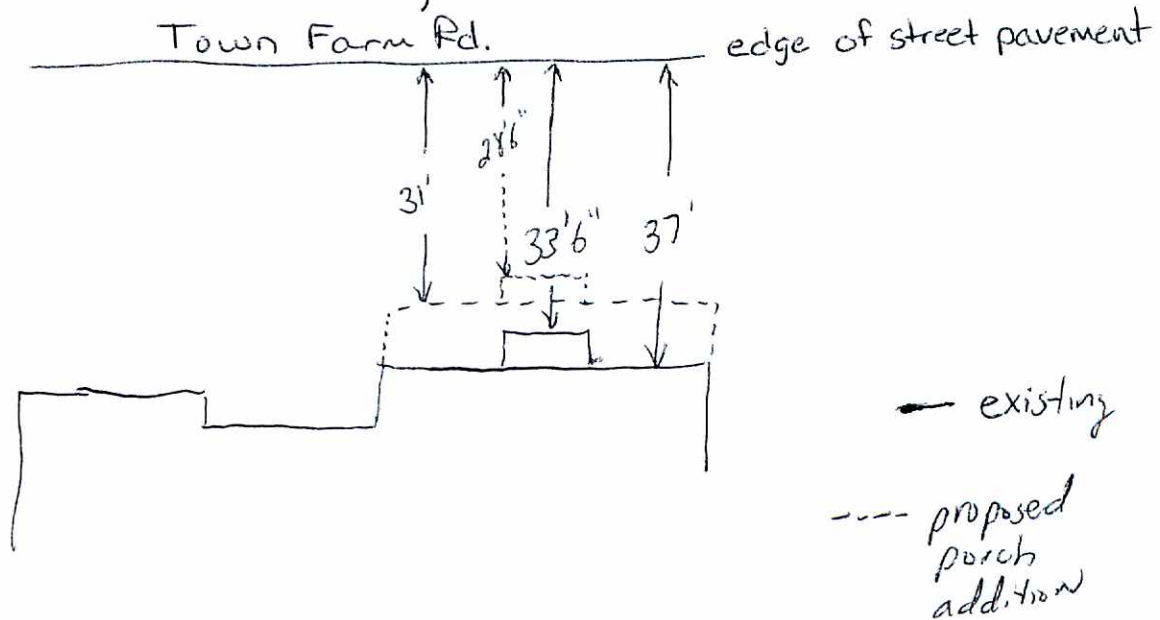 Town Farm Rd.
edge of street pavement
31'
28'6"
33'6"
37'
existing
proposed
porch
addition